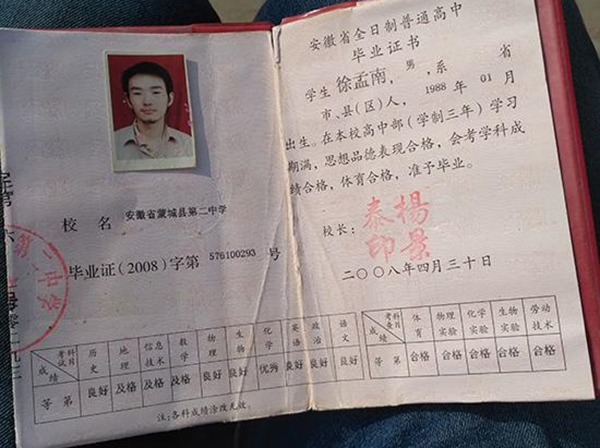 校 名 安徽省蒙城县第二中学
毕业证(2008)字第 576100293 号
考试科目 历史 地理 信息技术 数学 物理 生物 化学 英语 政治 语文
成绩
等 第 良好 及格 及格 及格 良好 良好 优秀 良好 良好 良好
注:各科成绩涂改无效。
安徽省全日制普通高中
毕业证书
学生 徐孟南,男,系 省
市、县(区)人,1988 年 01 月
出生。在本校高中部(学制三年)学习
期满,思想品德表现合格,会考学科成
绩合格,体育合格,准予毕业。
校长: 楊景泰印
二〇〇八年四月三十日
考查科目 体育 物理实验 化学实验 生物实验 劳动技术
成绩
等 第 合格 合格 合格 合格 合格